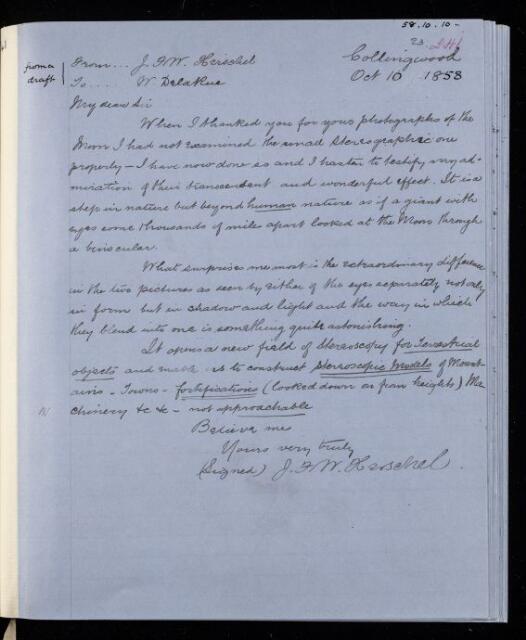 58.10.10-
23. 241
from a draft
From... J. F. W. Herschel
Collingwood
To.... W. DelaRue
Oct 10 1858
My dear Sir
When I thanked you for your photographs of the
Moon I had not examined the small stereographic one
properly - I have now done so and I hasten to testify my ad-
miration of their transcendent and wonderful effect. It is a
step in nature but beyond human nature as if a giant with
eyes some thousands of miles apart looked at the Moon through
a binocular.
What surprises me most is the extraordinary difference
in the two pictures as seen by either of the eyes separately not only
in form but in shadow and light and the way in which
they blend into one is something quite astonishing.
It opens a new field of stereoscopy for Terrestrial
objects and that is to construct stereoscopic models of Mount-
ains - Towns - fortifications (looked down on from heights) Ma
chinery &c &c - not approachable
Believe me
Yours very truly
(Signed) J. F. W. Herschel.